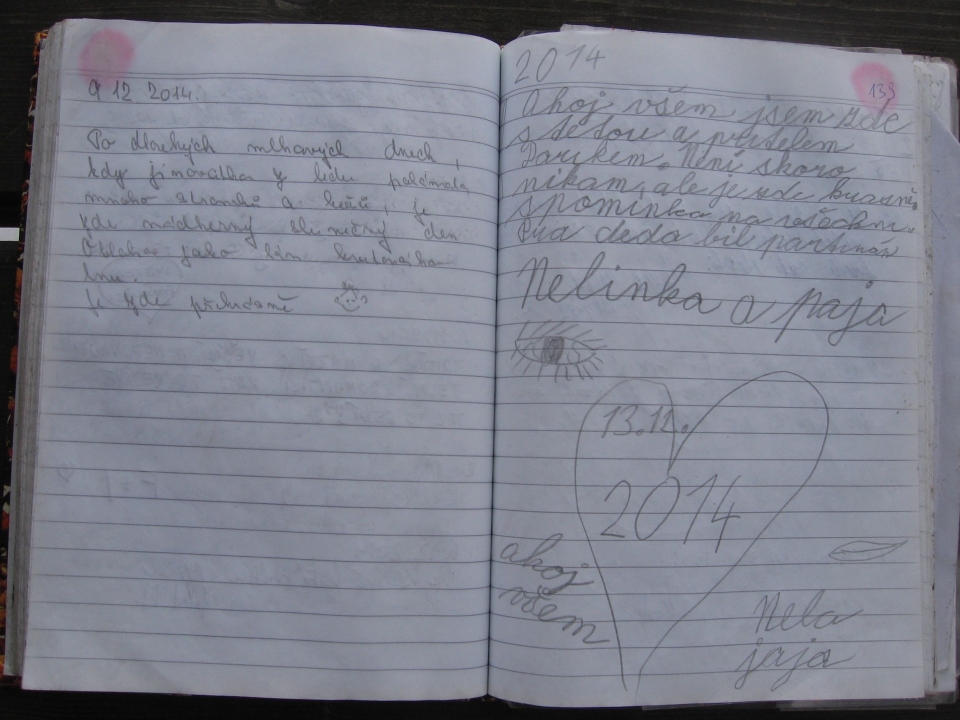 9 12 2014.
Po dlouhých mlhavých dnech,
kdy jinovatka y ledu polámala
mnoho stromků a keřů, je
zde nádherný sluneční den.
Obloha jako lán
lnu
Je zde překrásně
2014
133
Ahoj všem jsem zde
s tetou a přítelem
Darkem. Není skoro
nikam, ale je zde krasně,
spominka na všechni.
děda bil partizán
Nelinka a paja
13.12.
2014
ahoj
všem
Nela
jaja